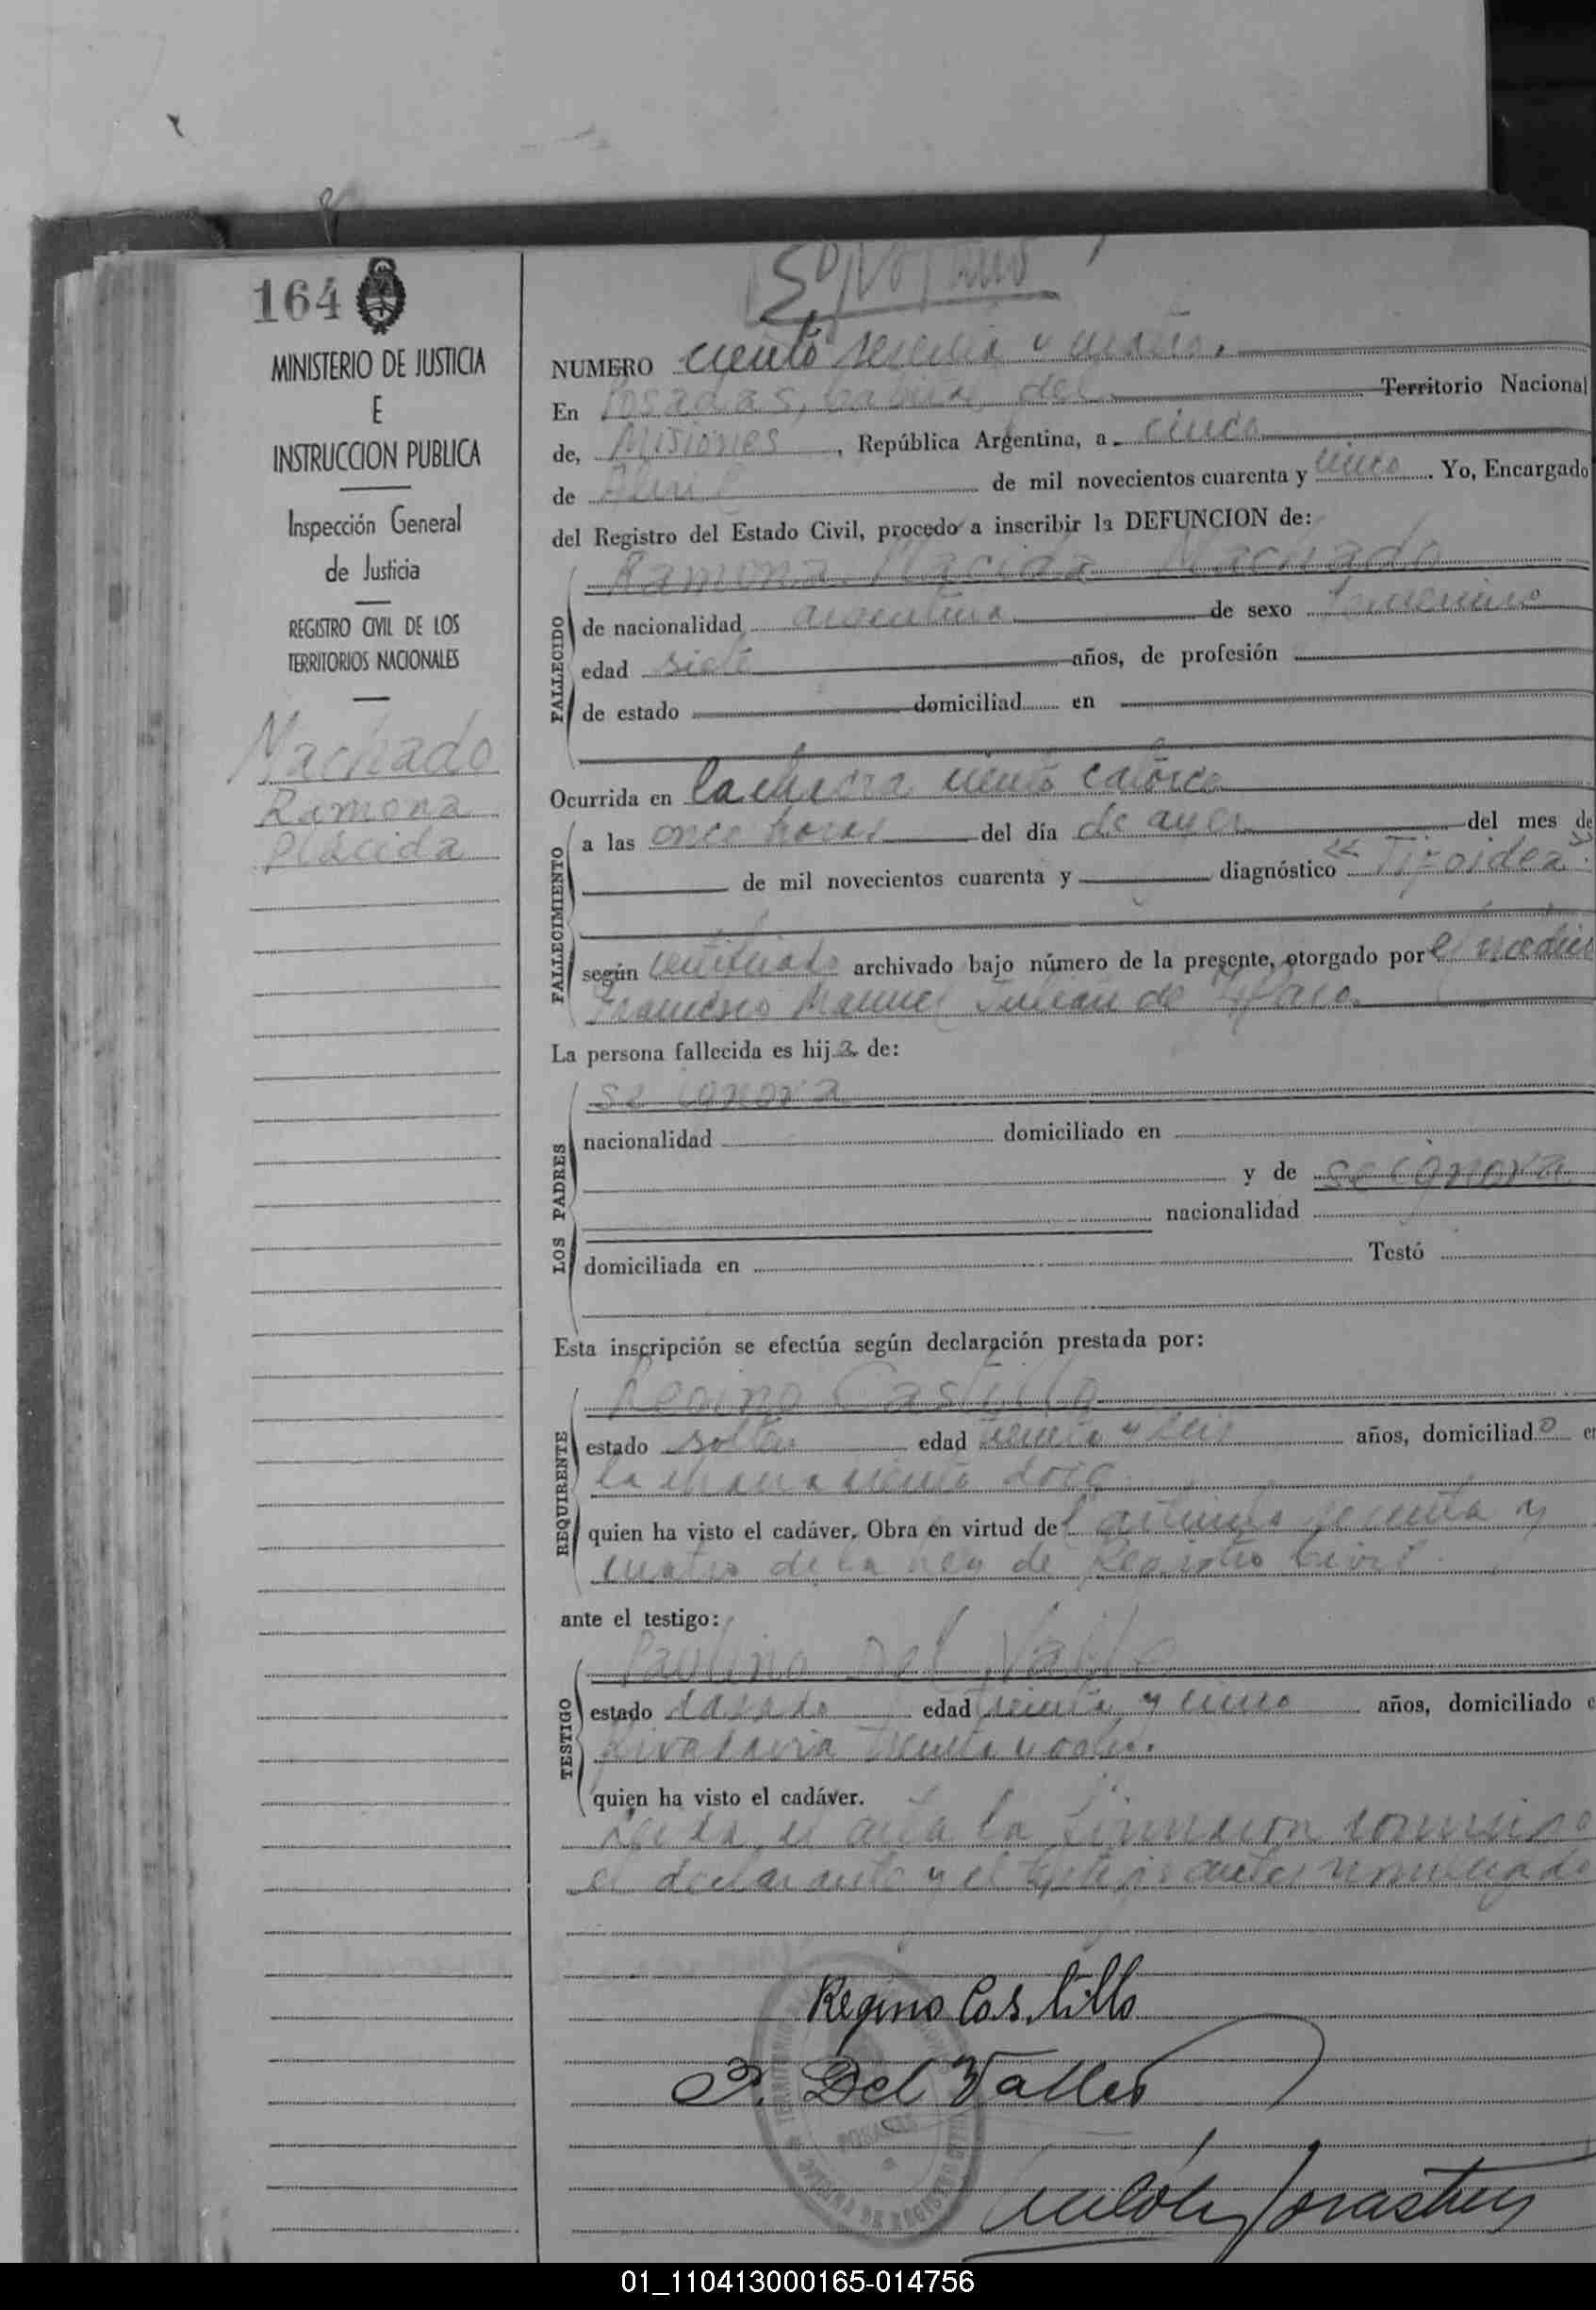 164
MINISTERIO DE JUSTICIA
E
INSTRUCCION PUBLICA
Inspección General
de Justicia
REGISTRO CIVIL DE LOS
TERRITORIOS NACIONALES
Machado
Ramona
Plácida
NUMERO ciento sesenta y cuatro.
En Posadas, capital del Territorio Nacional
de, Misiones, República Argentina, a cinco
de Abril de mil novecientos cuarenta y cinco. Yo, Encargado
del Registro del Estado Civil, procedo a inscribir la DEFUNCION de:
Ramona Placida Machado
FALLECIDO
de nacionalidad argentina de sexo femenino
edad siete años, de profesión
de estado domiciliad en
Ocurrida en la chacra ciento catorce
FALLECIMIENTO
a las once horas del día de ayer del mes de
de mil novecientos cuarenta y diagnóstico "Tifoidea".
según certificado archivado bajo número de la presente, otorgado por el médico
Francisco Manuel de
La persona fallecida es hija de:
LOS PADRES
se ignora
nacionalidad domiciliado en
y de se ignora
nacionalidad
domiciliada en Testó
Esta inscripción se efectúa según declaración prestada por:
REQUIRENTE
Regino Castillo
estado soltero edad treinta y seis años, domiciliado en
la chacra ciento doce
quien ha visto el cadáver. Obra en virtud del artículo sesenta y
cuatro de la ley de Registro Civil.
ante el testigo:
TESTIGO
Paulino Del Valle
estado casado edad treinta y cinco años, domiciliado e
Rivadavia treinta y ocho.
quien ha visto el cadáver.
Leida el acta la firmaron conmigo
el declarante y el testigo antes nombrado
Regino Castillo
P. Del Valle
POSADAS
01_110413000165-014756